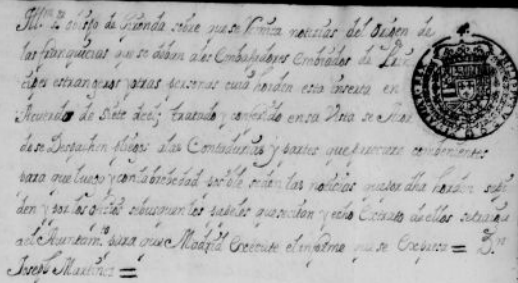 obispo de Gironda sobre que se Venza noticias del orden de
las franquicias que se daban a los Embaxadores Embiados de Prin
cipes estrangeros y otras personas cuia horden esta inserta en
Acuerdo de siete deel; tratado y conferido en sa Vista se Acor
do se Despachen pliegos a las Contadurias y partes que parecare combenientes
para que luego y con la brebedad posible se den las noticias que por dha horden se pi
den y por los ofizios se busquen los papeles que se citan y echo Extrato de ellos se traiga
al Ayuntamto para que Madrid Execute el informe que se Expresa = Dn
Joseph Martinez =